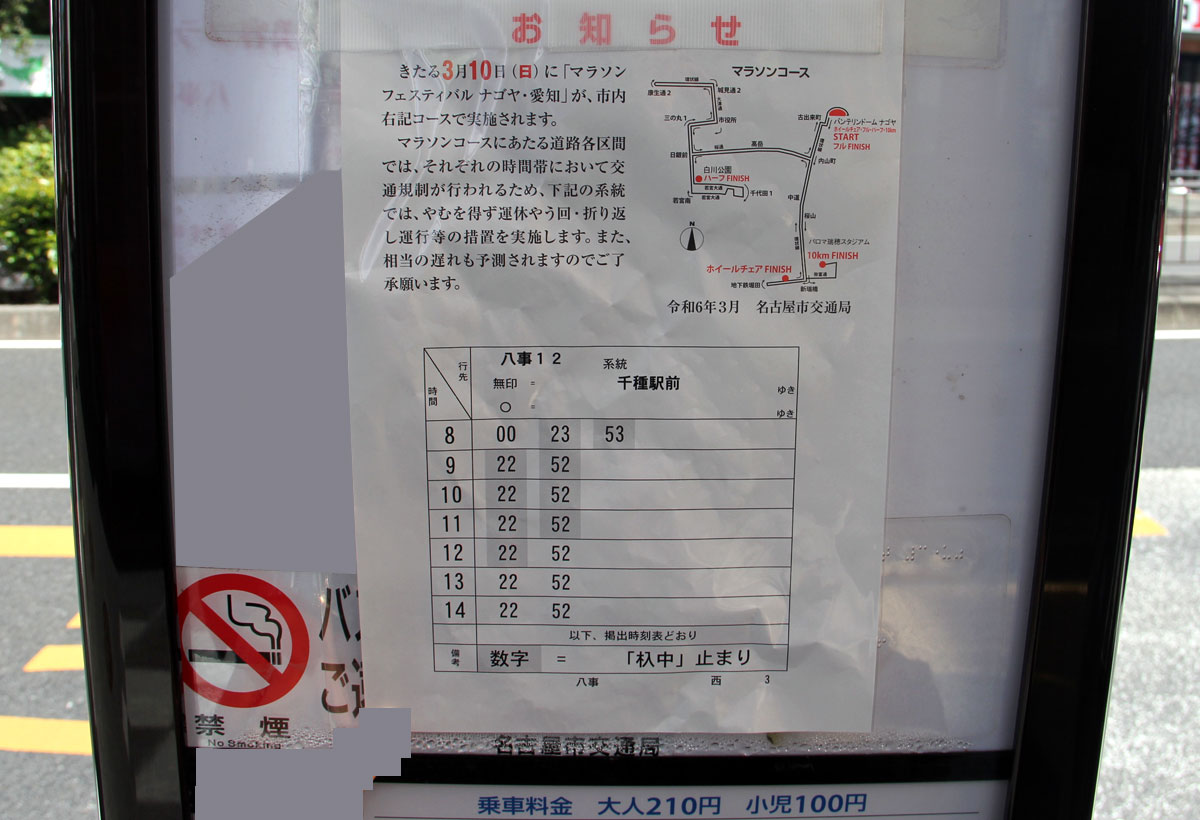 お知らせ
きたる3月10日(日)に「マラソン
フェスティバル ナゴヤ・愛知」が、市内
右記コースで実施されます。
マラソンコースにあたる道路各区間
では、それぞれの時間帯において交
通規制が行われるため、下記の系統
では、やむを得ず運休やう回・折り返
し運行等の措置を実施します。また、
相当の遅れも予測されますのでご了
承願います。
マラソンコース
環状線
康生通2
城見通2
三の丸1
市役所
古出来町
バンテリンドーム ナゴヤ
ホイールチェア・フル・ハーフ・10km
START
フル FINISH
日銀前
桜通
高岳
内山町
白川公園
ハーフ FINISH
若宮大通
若宮大通
千代田1
若宮南
中道
桜山
N
パロマ瑞穂スタジアム
10km FINISH
ホイールチェア FINISH
地下鉄堀田
新瑞橋
令和6年3月 名古屋市交通局
行先
時間
八事12 系統
無印 = 千種駅前 ゆき
○ = ゆき
8 00 23 53
9 22 52
10 22 52
11 22 52
12 22 52
13 22 52
14 22 52
以下、掲出時刻表どおり
備考 数字 = 「杁中」止まり
八事 西 3
バ
ご
禁煙
No Smoking
名古屋市交通局
乗車料金 大人210円 小児100円